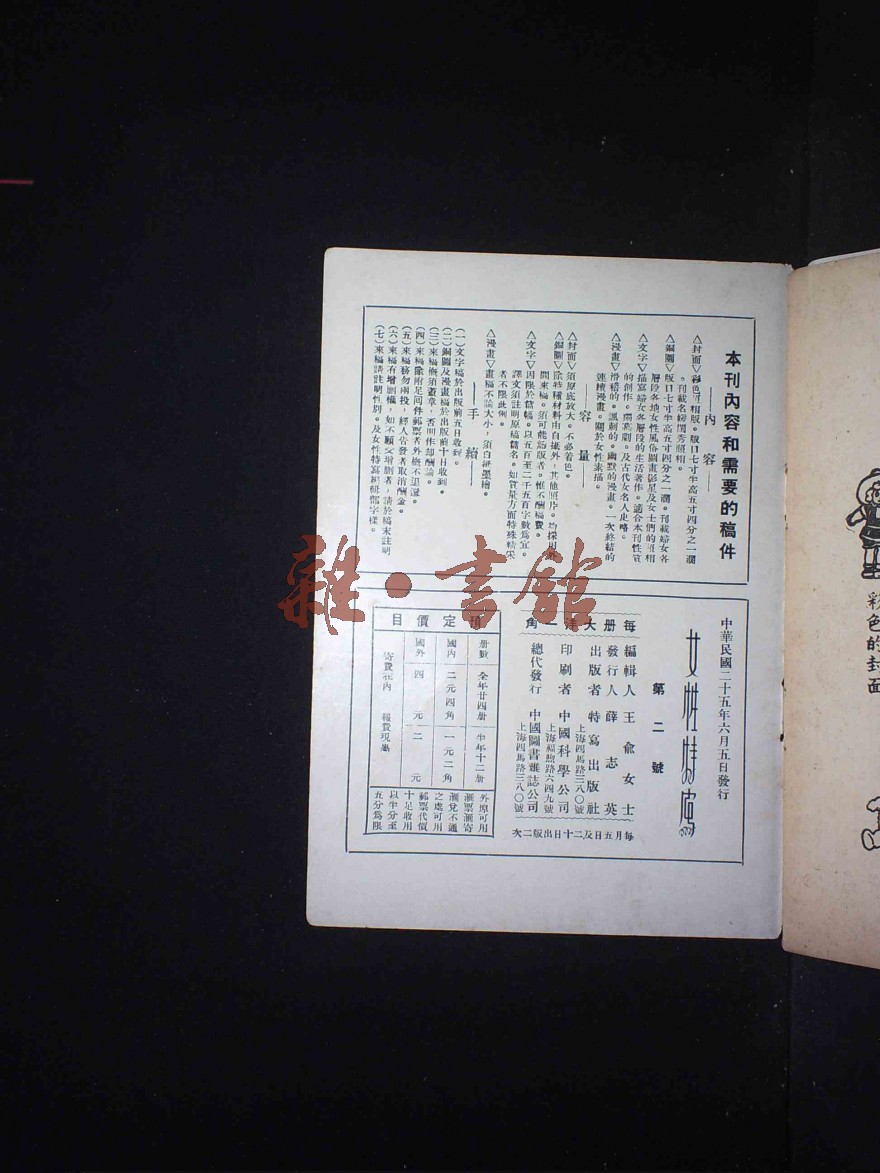 本刊內容和需要的稿件
——內容——
△封面▽彩色照相版。版口七寸半高五寸四分之一濶
。刊載名婦閨秀照相。
△銅圖▽版口七寸半高五寸四分之一濶。刊載婦女各
層段各地女性風俗圖畫影星及女士們的照相
△文字▽描寫婦女各層段的生活著作。適合本刊性質
的創作。獨幕劇。及古代女名人史略。
△漫畫▽滑稽的。諷刺的。幽默的漫畫。一次終結的
連續漫畫。關於女性素描。
——容量——
△封面▽須原底放大。不必着色。
△銅圖▽除特種材料由自攝外。其他照片。均採用外
間來稿。須可能鑄版者。惟不酬稿費。
△文字▽因限於篇幅。以五百至二千五百字數爲宜。
譯文須註明原稿篇名。如質量方面特殊精采
者不限此例。
△漫畫▽畫稿不論大小，須白紙墨繪。
——手續——
(一)文字稿於出版前五日收到。
(二)銅圖及漫畫稿於出版前十日收到。
(三)來稿概須蓋章，否則作却酬論。
(四)來稿除附足回件郵票者外概不退還。
(五)來稿務勿兩投，經人告發者取消酬金。
(六)來稿有增刪權，如不願受增刪者，請於稿末註明
(七)來稿請註明性別。及女性特寫編輯部字樣。
中華民國二十五年六月五日發行
女性特寫
第二號
每册大洋一角
編輯人 王兪女士
發行人 薛志英
出版者 特寫出版社
上海四馬路三八〇號
印刷者 中國科學公司
上海福煦路六四九號
總代發行 中國圖書雜誌公司
上海四馬路三八〇號
每月五日及二十日出版二次
預定價目
册數 全年廿四册 半年十二册
國內 二元四角 一元二角
國外 四元 二元
寄費在內 報費現惠
外埠可用
滙票滙寄
滙兌不通
之處可用
郵票代價
十足收用
以半分至
五分爲限
彩色的封面
雜·書館